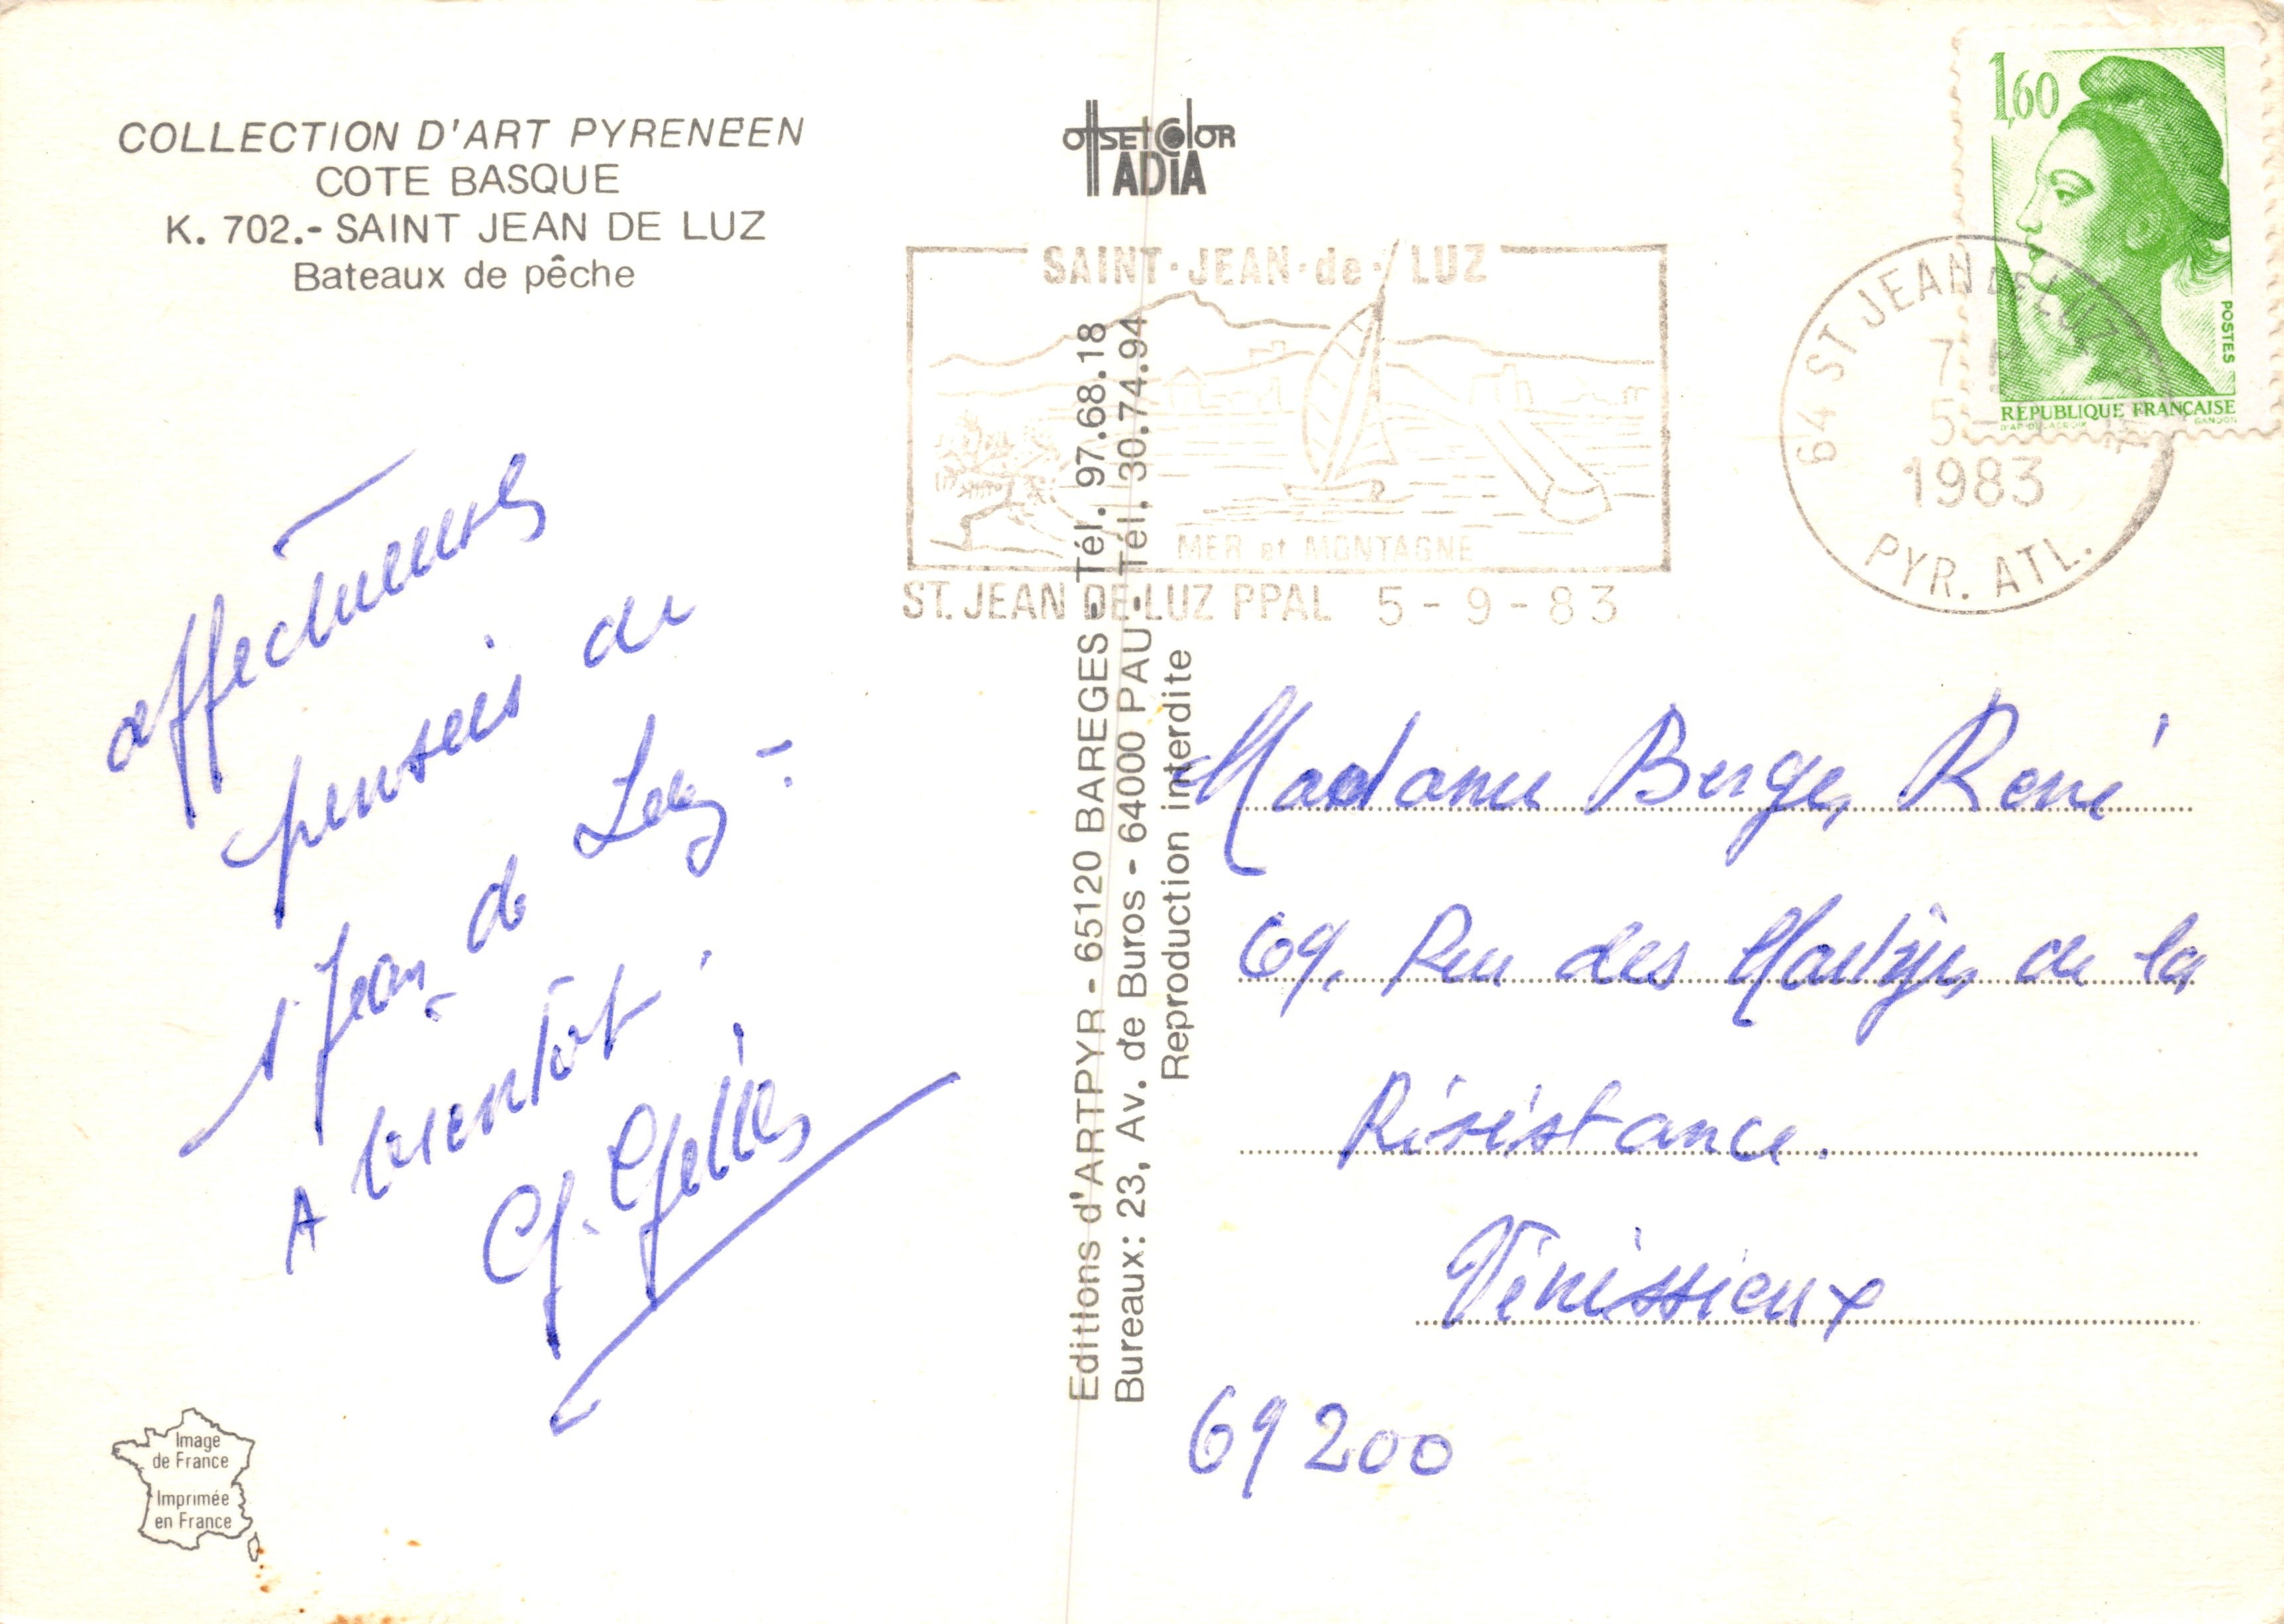 COLLECTION D'ART PYRENEEN
COTE BASQUE
K. 702.- SAINT JEAN DE LUZ
Bateaux de pêche
offset color
ADIA
SAINT-JEAN-de-LUZ
MER et MONTAGNE
ST. JEAN DE LUZ PPAL 5-9-83
1,60
POSTES
REPUBLIQUE FRANÇAISE
D'AP. DELACROIX GANDON
64 ST JEAN DE LUZ
7 H
5 -
1983
PYR. ATL.
affectueuses
pensées de
St Jean de Luz -
A bientôt.
Editions d'ARTPYR - 65120 BAREGES - Tél. 97.68.18
Bureaux: 23, Av. de Buros - 64000 PAU - Tél. 30.74.94
Reproduction interdite
Madame Berge, René
69, Rue des Martyrs de la
Résistance.
Vénissieux
69200
Image
de France
Imprimée
en France